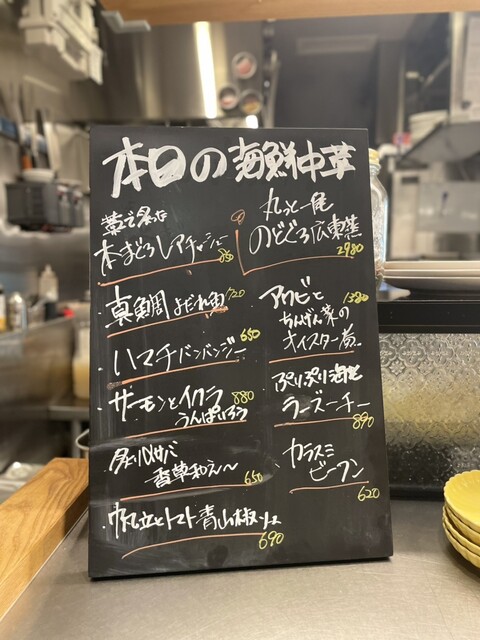 本日の海鮮中華
藁で炙った
本まぐろレアチャーシュー
真鯛よだれ魚 720
ハマチバンバンジー 650
サーモンとイクラ 880
うんぱいろう
炙りのサバ
香草和え〜 650
帆立とトマト青山椒ソース
690
丸っと一尾
のどぐろ広東蒸
2980
アワビと 1380
ちんげん菜の
オイスター煮
ぷりぷり海老
ラーズーチー
890
カラスミ
ビーフン
620